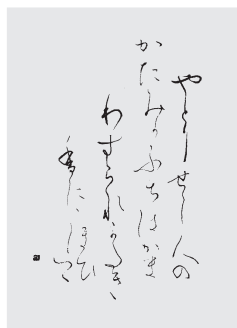 やどりせし人の
かたみかふぢばかま
わすられがたき
香ににほひつつ